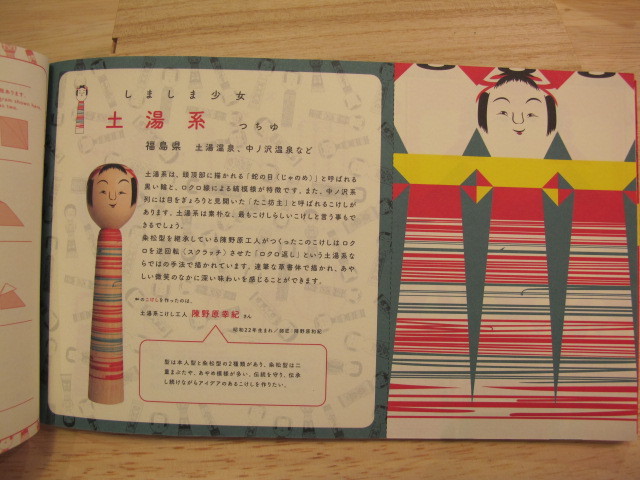 しましま少女
土湯系 つちゆ
福島県 土湯温泉、中ノ沢温泉など
土湯系は、頭頂部に描かれる「蛇の目(じゃのめ)」と呼ばれる
黒い輪と、ロクロ線による縞模様が特徴です。また、中ノ沢系
列には目をぎょろりと見開いた「たこ坊主」と呼ばれるこけしが
あります。土湯系は素朴な、最もこけしらしいこけしと言う事もで
きるでしょう。
粂松型を継承している陳野原工人がつくったこのこけしはロク
ロを逆回転(スクラッチ)させた「ロクロ返し」という土湯系な
らではの手法で描かれています。達筆な草書体で描かれ、あや
しい微笑のなかに深い味わいを感じることができます。
このこけしを作ったのは、
土湯系こけし工人 陳野原幸紀 さん
昭和22年生まれ/師匠/陳野原和紀
型は本人型と粂松型の2種類があり、粂松型は二
重まぶたや、あやめ模様が多い。伝統を守り、伝承
し続けながらアイデアのあるこけしを作りたい。